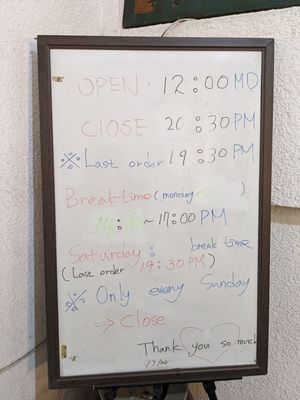 OPEN 12:00 MD
CLOSE 20:30 PM
※ Last order 19:30 PM
Break time (monday )
~ 17:00 PM
Saturday : break time
(Last order 19:30 PM)
※ Only every Sunday
⇒ Close
Thank you so much